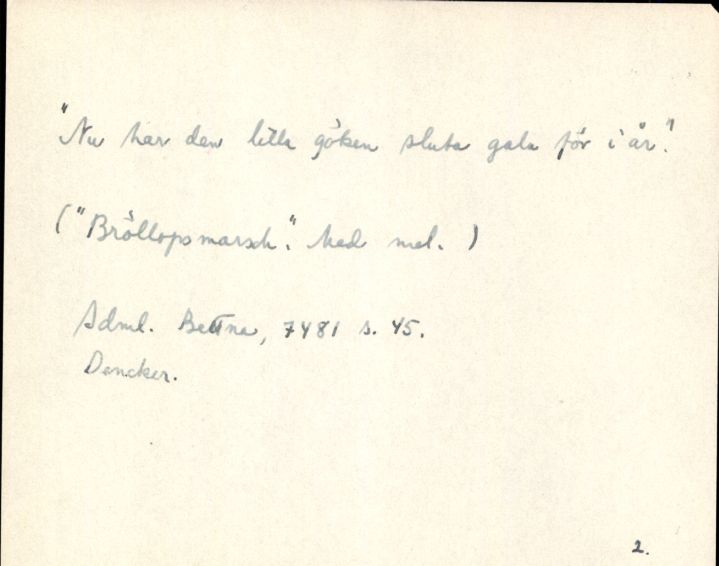 "Nu har den lilla göken sluta gala för i år."
("Bröllopsmarsch". Med mel. )
Sdml. Bettna, 7481 s. 45.
Dencker.
2.